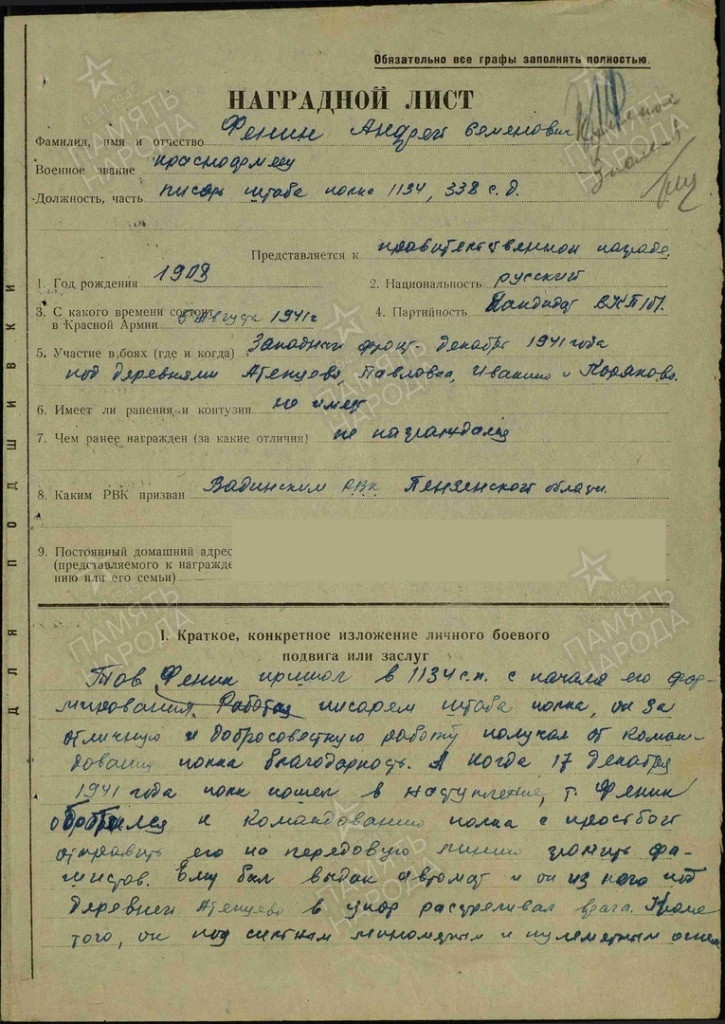 Обязательно все графы заполнять полностью.
НАГРАДНОЙ ЛИСТ
Фамилия, имя и отчество Фенин Андрей Семенович
Военное звание красноармеец
Должность, часть писарь штаба полка 1134, 338 с.д.
Представляется к правительственной награде.
1. Год рождения 1908 2. Национальность русский
3. С какого времени состоит в Августа 1941г 4. Партийность Кандидат ВКП(б).
в Красной Армии
5. Участие в боях (где и когда) Западный фронт - декабрь 1941 года
под деревнями Атепцево, Павловка, Ивакино и Коряково.
6. Имеет ли ранения и контузии не имеет
7. Чем ранее награжден (за какие отличия) не награждался
8. Каким РВК призван Вадинским РВК Пензенской области.
9. Постоянный домашний адрес
(представляемого к награжде
нию или его семьи)
I. Краткое, конкретное изложение личного боевого
подвига или заслуг
Тов Фенин пришол в 1134 с.п. с начала его фор-
мирования. Работая писарем штаба полка, он за
отличную и добросовестную работу получал от коман-
дования полка благодарность. А когда 17 декабря
1941 года полк пошел в наступление, т. Фенин
обратился к командованию полка с просьбой
отправить его на передовую линию громить фа-
шистов. Ему был выдан автомат и он из него под
деревней Атепцево в упор расстреливал врага. Кроме
того, он под сильным минометным и пулеметным огнем
ДЛЯ ПОДШИВКИ
ПАМЯТЬ НАРОДА
ПАМЯТЬ НАРОДА
ПАМЯТЬ НАРОДА
ПАМЯТЬ НАРОДА
ПАМЯТЬ НАРОДА